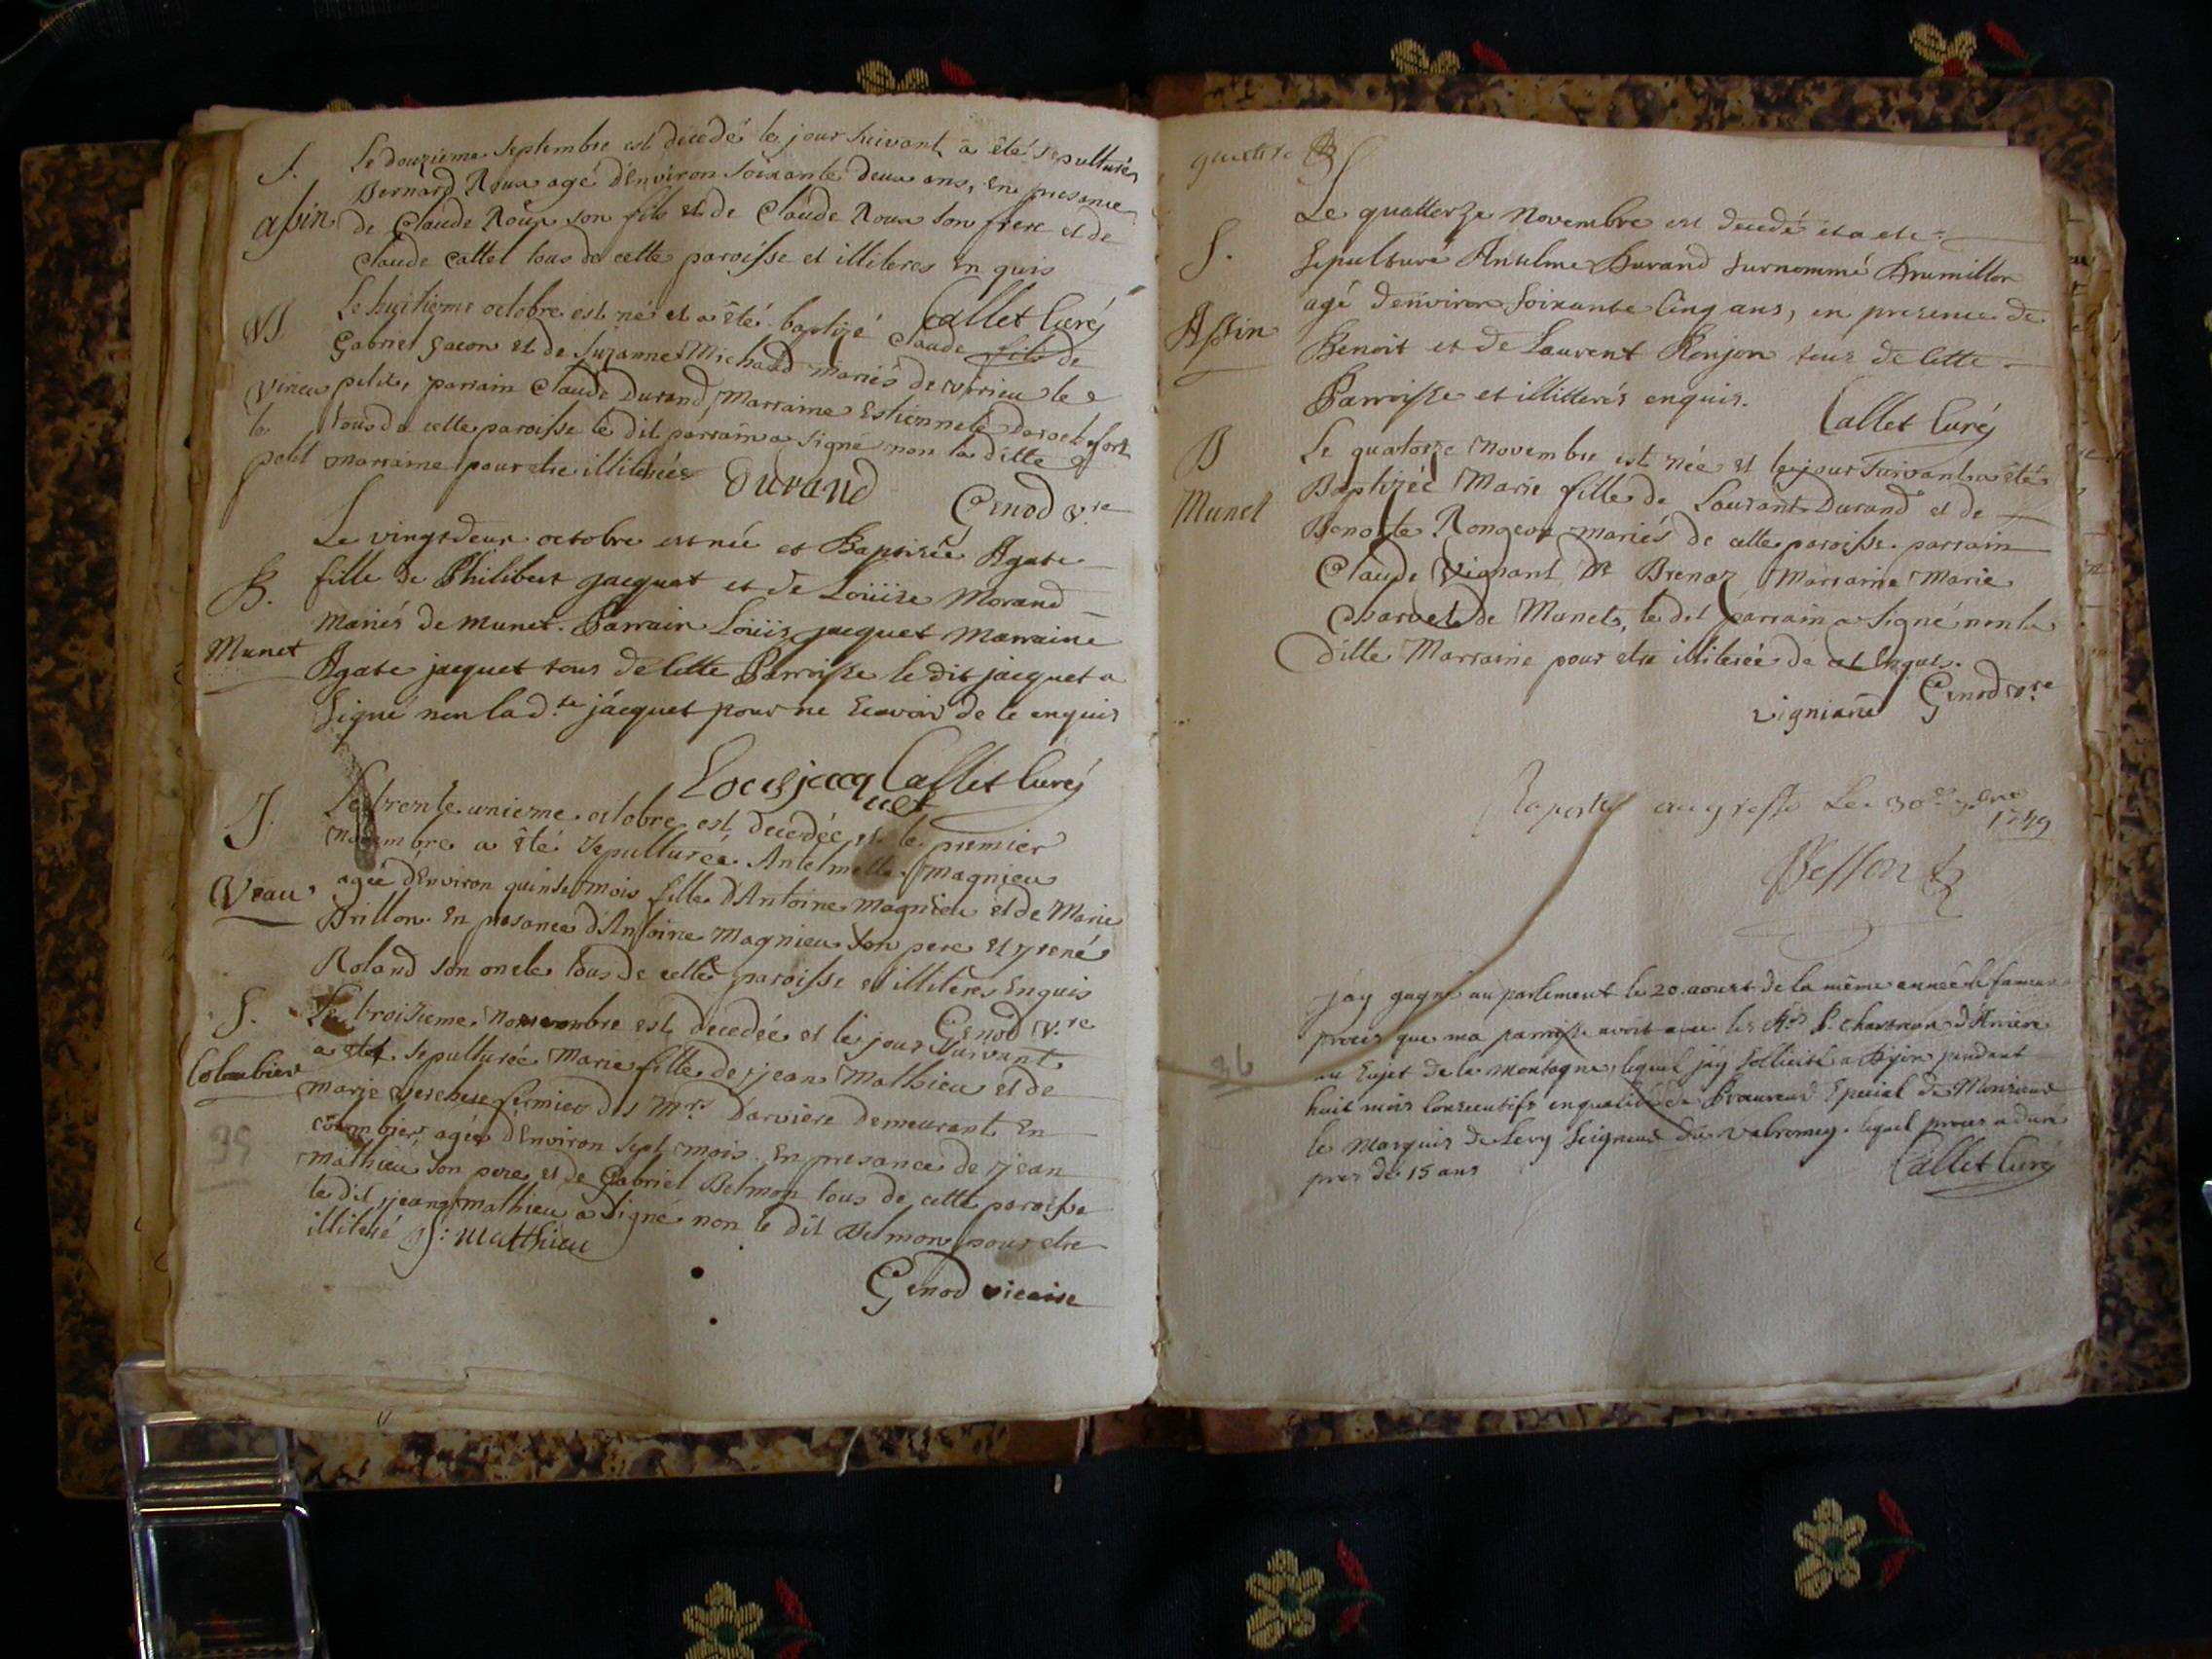 S. Le douzieme Septembre est décedé le jour suivant a été sepulturé
Bernard Roux agé d'Environ soixante deux ans, En presance
assin de Claude Roux son fils et de Claude Roux son frere et de
Claude Cattet tous de cette paroisse et illiteres En quis
Callet Curé
B. Le huitieme octobre est né et a été baptizé Claude fils de
Gabriel Jacon et de Suzanne Michaud mariés de virieu le
virieu petit, parrain Claude Durand, Marraine Estiennete
le tous de cette paroisse le dit parrain a signé non la ditte
petit marraine pour etre illiterée Durand Genod v.re
Le vingtdeux octobre est née et Baptisée Agate
B. fille de Philibert jacquet et de Loüise Morand
mariés de munet. Parrain Loüis jacquet Marraine
Munet Agate jacquet tous de cette Parroisse le dit jacquet a
signé non lad.te jacquet pour ne scavoir de ce enquis
Louis jacquet Callet Curé
S. Le trente unieme octobre est decedée et le premier
novembre a été sepulturée Antelmette Magnieu
Veau agée d'Environ quinse mois fille d'Antoine Magnieu et de Marie
Brillon. En presance d'Antoine Magnieu son pere et rené
Roland son oncle tous de cette paroisse et illiteres Enquis
Genod v.re
S. Le troisieme Novembre est decedée et le jour suivant
a eté sepulturée Marie fille de jean Mathieu et de
Colombier marie fermier de Mrs D'arviere demeurant En
colombier, agée d'Environ sept mois. En presance de jean
35
mathieu son pere et de Gabriel Belmon tous de cette paroisse
le dit jean mathieu a signé non le dit Belmon pour etre
illiteré J: Matthieu
Genod vicaire
Le quatterze Novembre est decedé et a ete
S. sepulturé Antelme Durand surnommé Brumillon
agé d'environ soixante cinq ans, en presence de
Assin Benoit et de Laurent Ronjon tous de cette
Parroisse et illitterés enquis.
Callet Curé
B Le quatorze Novembre est née et le jour suivant a été
Baptizée Marie fille de Laurant Durand et de
Munet Benoite Rongeon mariés de cette paroisse parrain
Claude Vignant De Brenaz Marraine Marie
Charvet de Munet, le dit parrain a signé non la
ditte Marraine pour etre illiterée de ce Enquis.
Genod v.re
Raporté au greffe Le 30e
1749
Besson
jay gagné au parlement le 20. aoust de la même année le fameux
procès que ma parroisse avoit avec les Rds P. chartreux d'Arviere
36
au sujet de la montagne, lequel jay sollicité a Dijon pendant
huit mois consecutifs en qualité de Procureur special de Monsieur
le Marquis de Levy Seigneur du valromey. lequel procès a duré
pres de 15 ans
Callet Curé